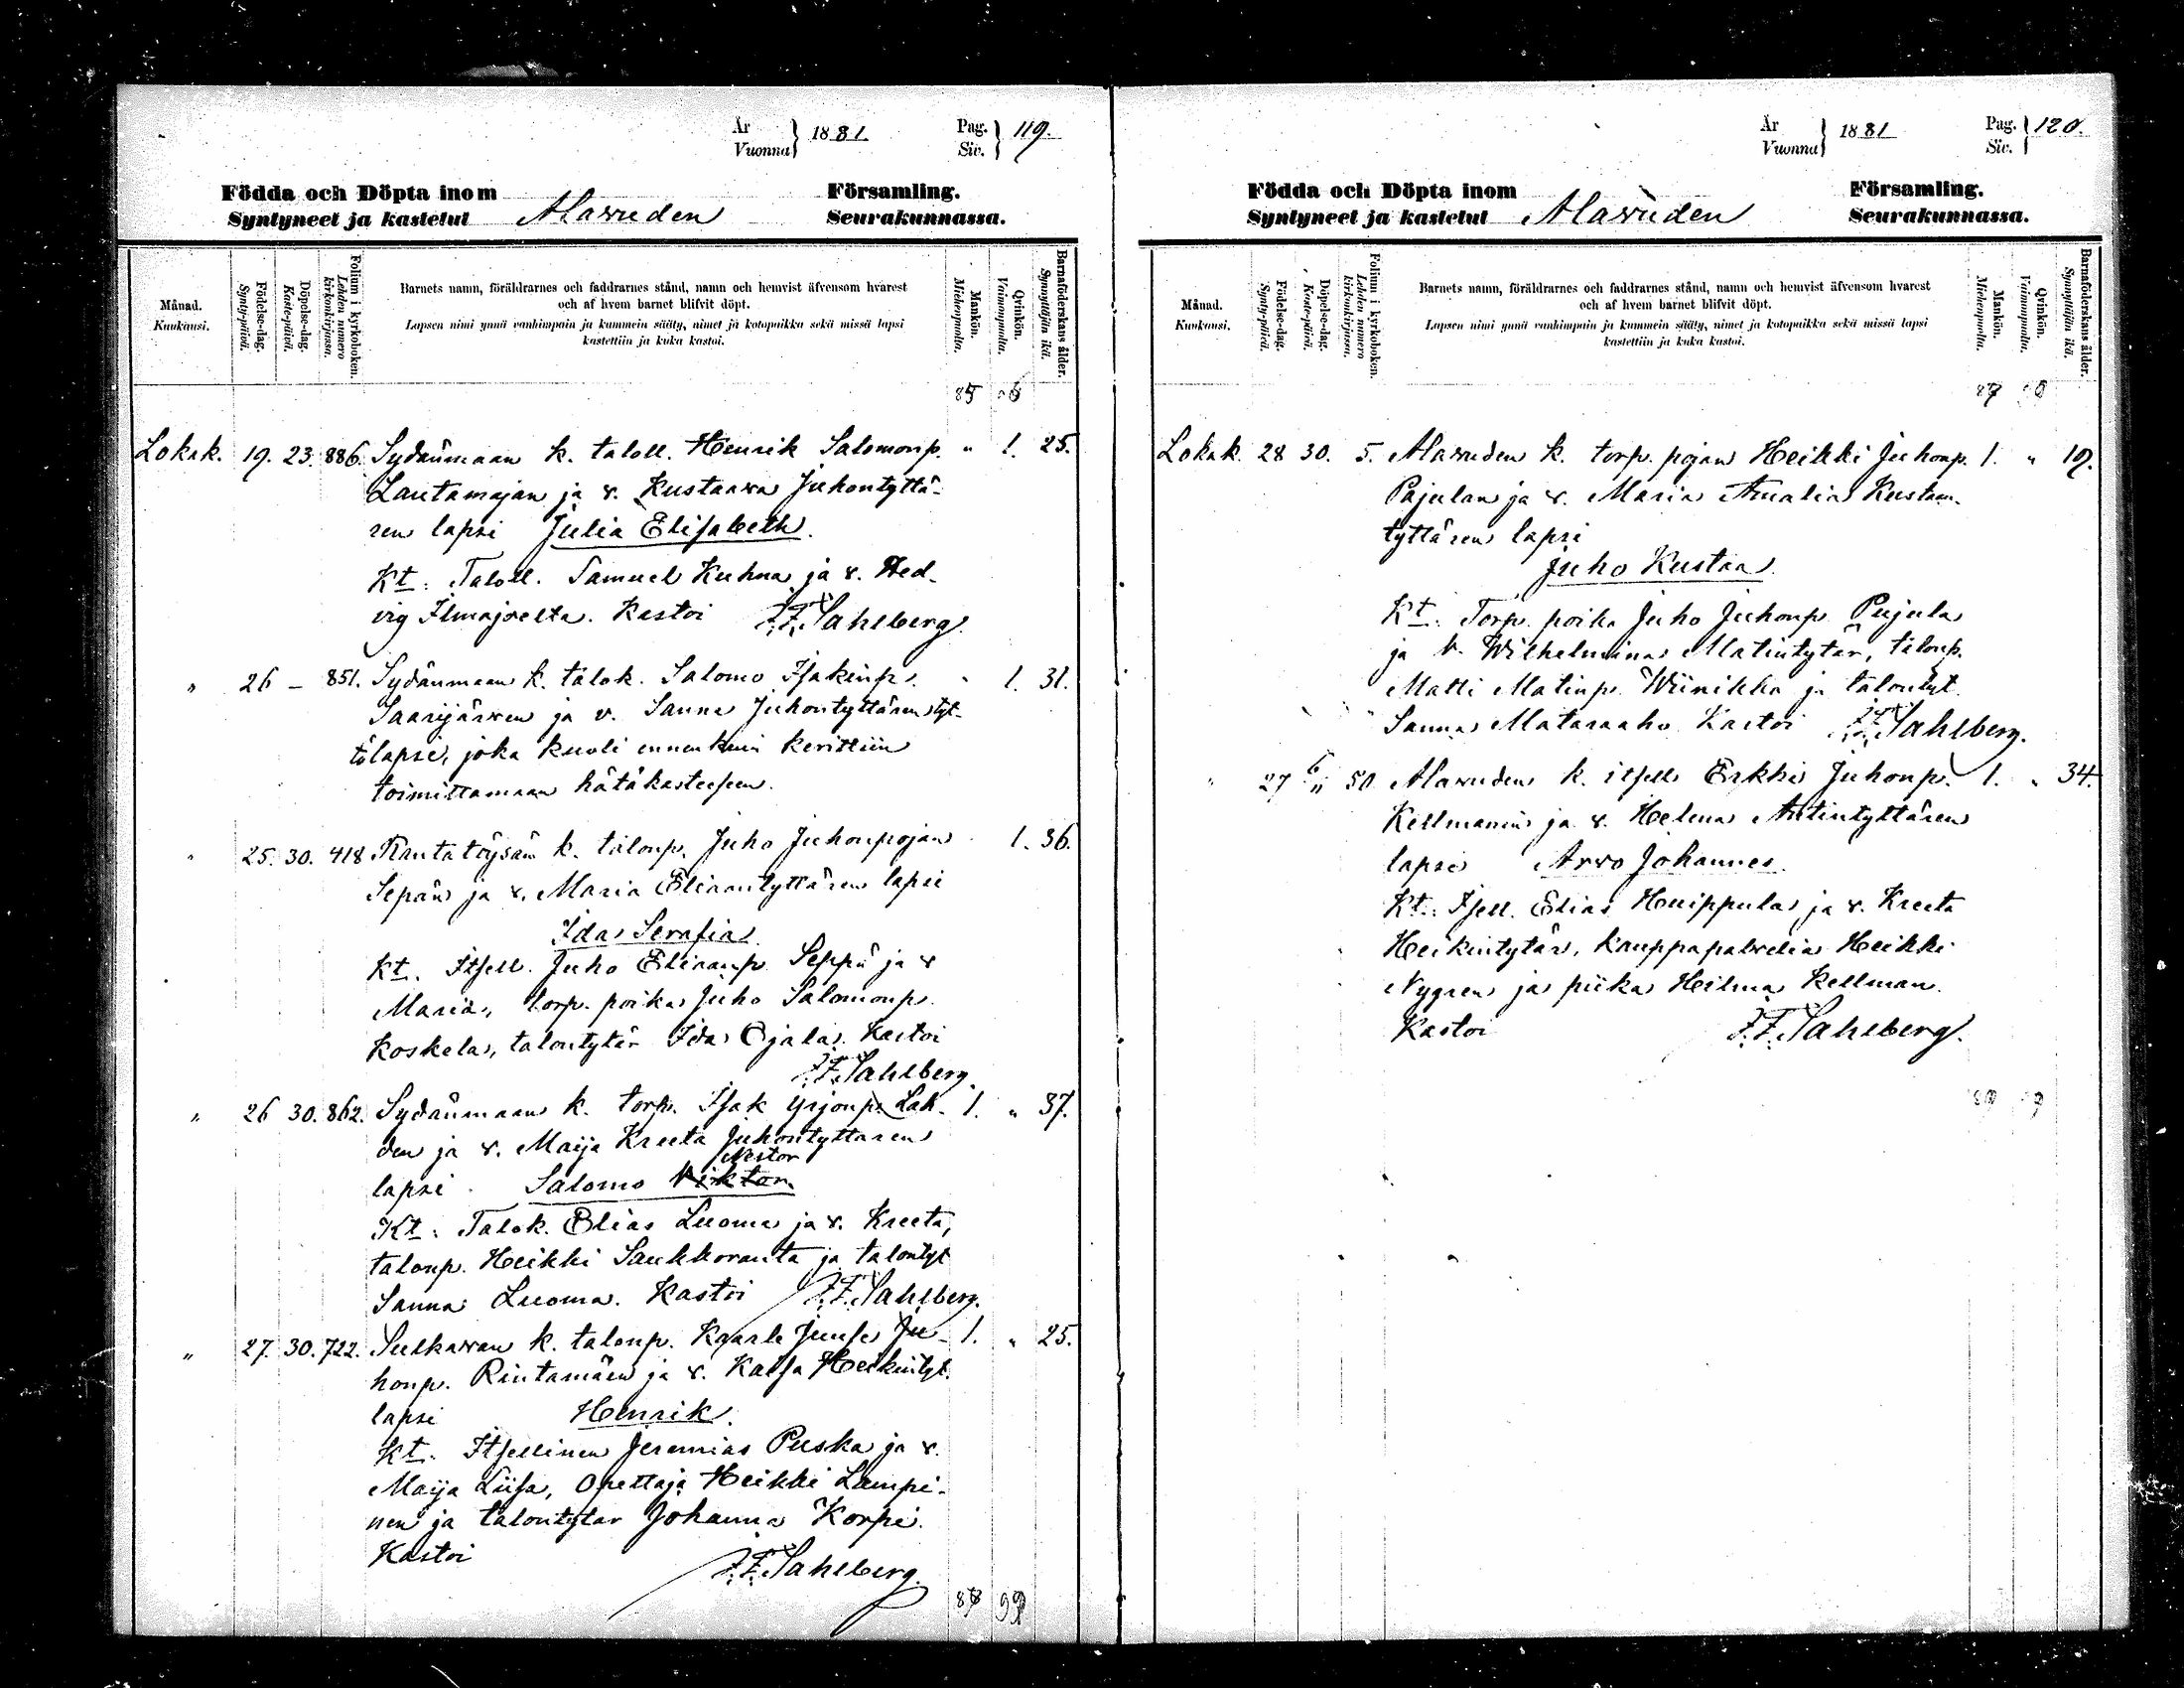 År
Vuonna } 1881. Pag.
Siv. } 119.
Födda och Döpta inom Församling.
Syntyneet ja kastetut Alavuden Seurakunnassa.
Månad.
Kuukausi.
Födelse-dag.
Synty-päivä.
Döpelse-dag.
Kaste-päivä.
Folium i kyrkoboken.
Lehden numero
kirkonkirjassa.
Barnets namn, föräldrarnes och faddrarnes stånd, namn och hemvist äfvensom hvarest
och af hvem barnet blifvit döpt.
Lapsen nimi ynnä vanhimpain ja kummein sääty, nimet ja kotopaikka sekä missä lapsi
kastettiin ja kuka kastoi.
Mankön.
Miehenpuolta.
Qvinkön.
Vaimonpuolta.
Barnaföderskans ålder.
Synnyttäjän ikä.
Lokak. 19. 23. 886. Sydänmaan k. taloll. Henrik Salomonp. " 1. 25.
Lautamajan ja v. Kustaava Juhontyttä-
ren lapsi Julia Elisabeth.
Kt: Taloll. Samuel Kuhna ja v. Hed-
vig Ilmajoelta. Kastoi J.F. Sahlberg.
" 26 – 851. Sydänmaan k. talok. Salomo Isakinp. " 1. 31.
Saarijärven ja v. Sanna Juhontyttären tyt-
tölapsi, joka kuoli ennenkuin kerittiin
toimittamaan hätäkasteeseen.
" 25. 30. 418 Rantatöysän k. talonp. Juho Juhonpojan 1. 36.
Sepän ja v. Maria Eliaantyttären lapsi
Ida Serafia
Kt. Itsell. Juho Eliaanp. Seppä ja v
Maria, torp. poika Juho Salomonp.
Koskela, talontytär Ida Ojala. Kastoi
J.F. Sahlberg.
" 26 30. 862. Sydänmaan k. torp. Isak Yrjonp. Lah- 1. " 37.
den ja v. Maija Kreeta Juhontyttaren
Nestor
lapsi Salomo Viktor.
Kt: Talok. Elias Luoma ja v. Kreeta,
talonp. Heikki Saukkoranta ja talontyt
Sanna Luoma. Kastoi J.F. Sahlberg.
" 27. 30. 722. Sulkavan k. talonp. Kaarle Juuse Ju- 1. " 25.
honp. Rintamäen ja v. Kaisa Heikintyt.
lapsi Henrik.
Kt. Itsellinen Jeremias Puska ja v.
Maija Liisa, Opettaja Heikki Lampi-
nen ja talontytar Johanna Korpi.
Kastoi J.F. Sahlberg.
År
Vuonna } 1881 Pag.
Siv. } 120.
Födda och Döpta inom Församling.
Syntyneet ja kastetut Alavuden Seurakunnassa.
Månad.
Kuukausi.
Födelse-dag.
Synty-päivä.
Döpelse-dag.
Kaste-päivä.
Folium i kyrkoboken.
Lehden numero
kirkonkirjassa.
Barnets namn, föräldrarnes och faddrarnes stånd, namn och hemvist äfvensom hvarest
och af hvem barnet blifvit döpt.
Lapsen nimi ynnä vanhimpain ja kummein sääty, nimet ja kotopaikka sekä missä lapsi
kastettiin ja kuka kastoi.
Mankön.
Miehenpuolta.
Qvinkön.
Vaimonpuolta.
Barnaföderskans ålder.
Synnyttäjän ikä.
Lokak 28 30. 5. Alavuden k. torp. pojan Heikki Juhonp. 1. " 19.
Pajulan ja v. Maria Amalia Kustan-
tyttären lapsi
Juho Kustaa.
Kt. Torp. poika Juho Juhonp. Pajula
ja v. Wilhelmina Matintytär, talonp.
Matti Matinp. Wiinikka ja talontyt.
Sanna Mataraaho Kastoi J.F. Sahlberg.
" 27 " 50 Alavuden k. itsell. Erkki Juhonp. 1. " 34.
Kellmanin ja v. Helena Antintyttären
lapsi Arvo Johannes.
Kt: Itsell. Elias Huippula ja v. Kreeta
Heikintytär, Kauppapalvelia Heikki
Nygren ja piika Heilma Kellman.
Kastoi J.F. Sahlberg.